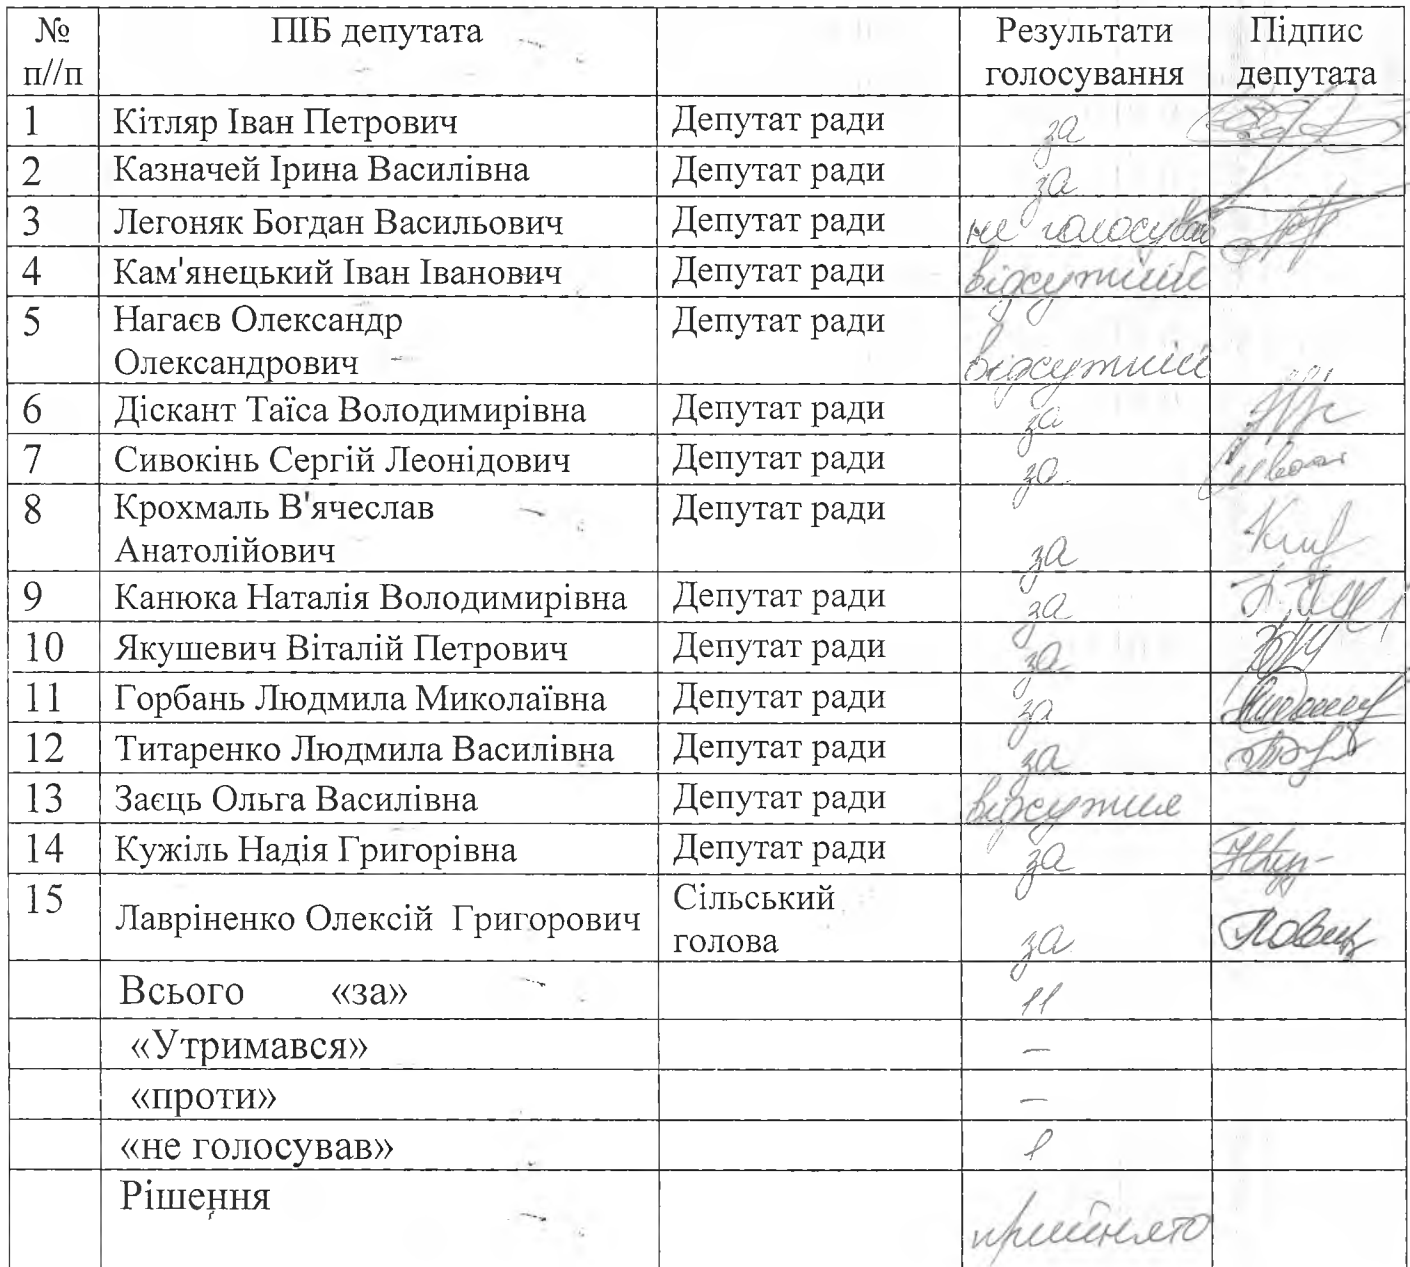 № п//п ПІБ депутата Результати голосування Підпис депутата
1 Кітляр Іван Петрович Депутат ради за
2 Казначей Ірина Василівна Депутат ради за
3 Легоняк Богдан Васильович Депутат ради не голосував
4 Кам'янецький Іван Іванович Депутат ради відсутній
5 Нагаєв Олександр Депутат ради
Олександрович відсутній
6 Діскант Таїса Володимирівна Депутат ради за
7 Сивокінь Сергій Леонідович Депутат ради за
8 Крохмаль В'ячеслав Депутат ради
Анатолійович за
9 Канюка Наталія Володимирівна Депутат ради за
10 Якушевич Віталій Петрович Депутат ради за
11 Горбань Людмила Миколаївна Депутат ради за
12 Титаренко Людмила Василівна Депутат ради за
13 Заєць Ольга Василівна Депутат ради відсутня
14 Кужіль Надія Григорівна Депутат ради за
15 Лавріненко Олексій Григорович Сільський голова за
Всього «за» 11
«Утримався» –
«проти» –
«не голосував» 1
Рішення прийнято